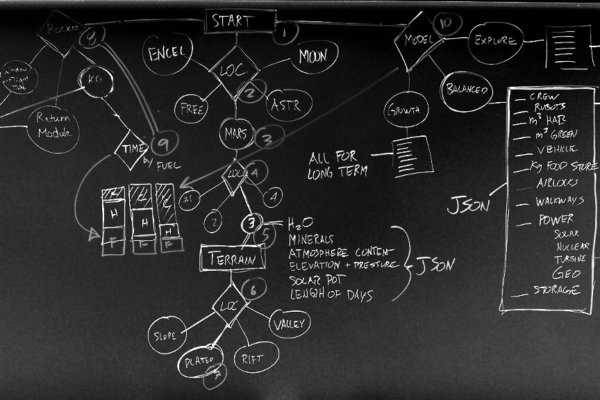 START
1
Rocket
8
ENCEL
MOON
LOC.
2
FREE
ASTR
MARS
3
LOC
4
4
2
3
5
H2O
MINERALS
ATMOSPHERE CONTENT
ELEVATION + PRESSURE
SOLAR POT
LENGTH OF DAYS
JSON
TERRAIN
LOC
6
SLOPE
VALLEY
PLATEO
RIFT
7
KG
Return
Module
TIME
9
FUEL
H
H
H
F
F
F
MODEL
10
EXPLORE
BALANCED
GROWTH
ALL FOR
LONG TERM
JSON
CREW
ROBOTS
m3 HAB
m3 GREEN
VEHICLE
Kg FOOD STORE
AIRLOCKS
WALKWAYS
POWER
SOLAR
NUCLEAR
TURBINE
GEO
STORAGE